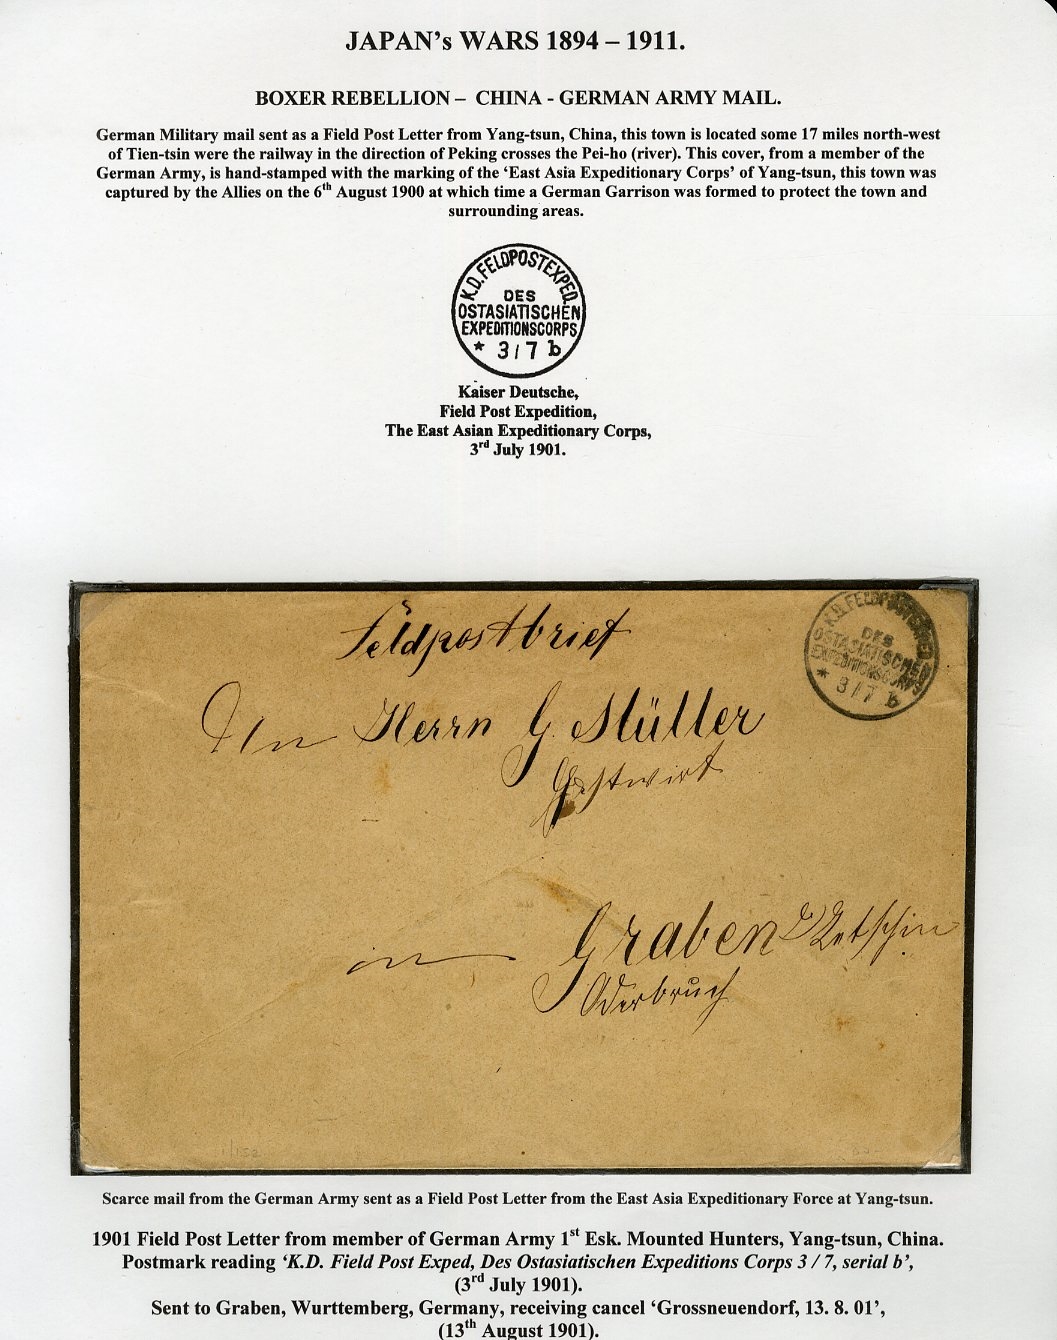 JAPAN's WARS 1894 – 1911.
BOXER REBELLION – CHINA - GERMAN ARMY MAIL.
German Military mail sent as a Field Post Letter from Yang-tsun, China, this town is located some 17 miles north-west
of Tien-tsin were the railway in the direction of Peking crosses the Pei-ho (river). This cover, from a member of the
German Army, is hand-stamped with the marking of the ‘East Asia Expeditionary Corps’ of Yang-tsun, this town was
captured by the Allies on the 6th August 1900 at which time a German Garrison was formed to protect the town and
surrounding areas.
K.D. FELDPOSTEXPED.
DES
OSTASIATISCHEN
EXPEDITIONSCORPS
* 3/7 b
Kaiser Deutsche,
Field Post Expedition,
The East Asian Expeditionary Corps,
3rd July 1901.
K.D. FELDPOSTEXPED.
DES
OSTASIATISCHEN
EXPEDITIONSCORPS
* 3/7 b
Feldpostbrief
An Herrn G. Müller
Gastwirt
in Graben b Letschin
Oderbruch
Scarce mail from the German Army sent as a Field Post Letter from the East Asia Expeditionary Force at Yang-tsun.
1901 Field Post Letter from member of German Army 1st Esk. Mounted Hunters, Yang-tsun, China.
Postmark reading ‘K.D. Field Post Exped, Des Ostasiatischen Expeditions Corps 3 / 7, serial b’,
(3rd July 1901).
Sent to Graben, Wurttemberg, Germany, receiving cancel ‘Grossneuendorf, 13. 8. 01’,
(13th August 1901).